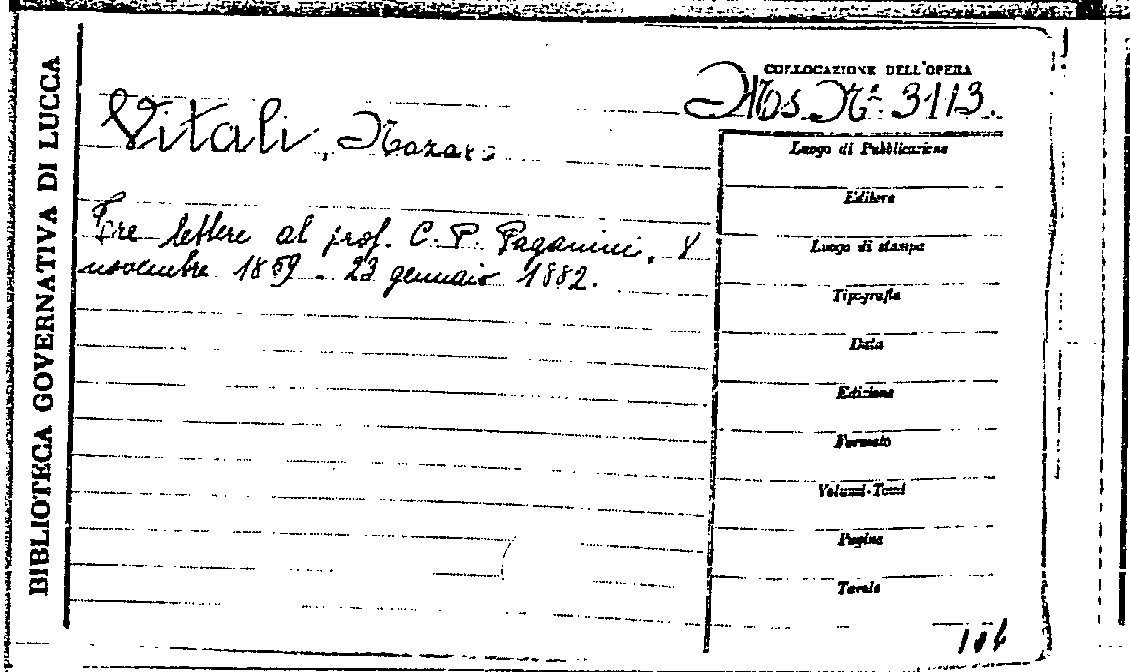 BIBLIOTECA GOVERNATIVA DI LUCCA
COLLOCAZIONE DELL'OPERA
Ms. Nº 3113.
Vitali, Nazaro
Tre lettere al prof. C. P. Paganini, 8
novembre 1859 - 23 gennaio 1882.
Luogo di Pubblicazione
Editore
Luogo di stampa
Tipografia
Data
Edizione
Formato
Volumi-Tomi
Pagine
Tavole